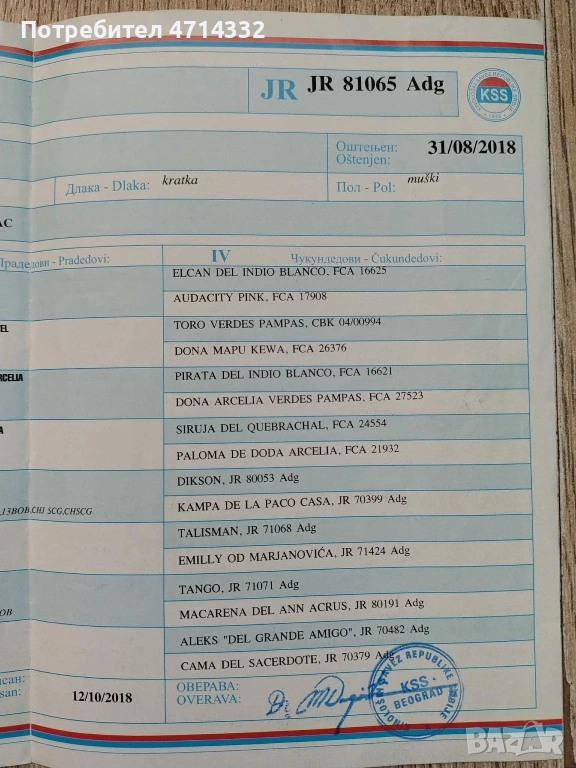 Потребител 4714332
JR JR 81065 Adg
KSS
Оштењен: 31/08/2018
Oštenjen:
Длака - Dlaka: kratka
Пол - Pol: muški
АС
Прадедови - Pradedovi:
IV Чукундедови - Čukundedovi:
ELCAN DEL INDIO BLANCO, FCA 16625
AUDACITY PINK, FCA 17908
TEL
TORO VERDES PAMPAS, CBK 04/00994
DONA MAPU KEWA, FCA 26376
ARCELIA
PIRATA DEL INDIO BLANCO, FCA 16621
DONA ARCELIA VERDES PAMPAS, FCA 27523
A
SIRUJA DEL QUEBRACHAL, FCA 24554
PALOMA DE DODA ARCELIA, FCA 21932
DIKSON, JR 80053 Adg
,13BOB,CHJ SCG,CHSCG
KAMPA DE LA PACO CASA, JR 70399 Adg
TALISMAN, JR 71068 Adg
EMILLY OD MARJANOVIĆA, JR 71424 Adg
TANGO, JR 71071 Adg
OB
MACARENA DEL ANN ACRUS, JR 80191 Adg
ALEKS "DEL GRANDE AMIGO", JR 70482 Adg
CAMA DEL SACERDOTE, JR 70379 Adg
исан:
san: 12/10/2018
ОВЕРАВА:
OVERAVA:
KINOLOŠKI SAVEZ REPUBLIKE SRBIJE
KSS
BEOGRAD
BAZAR